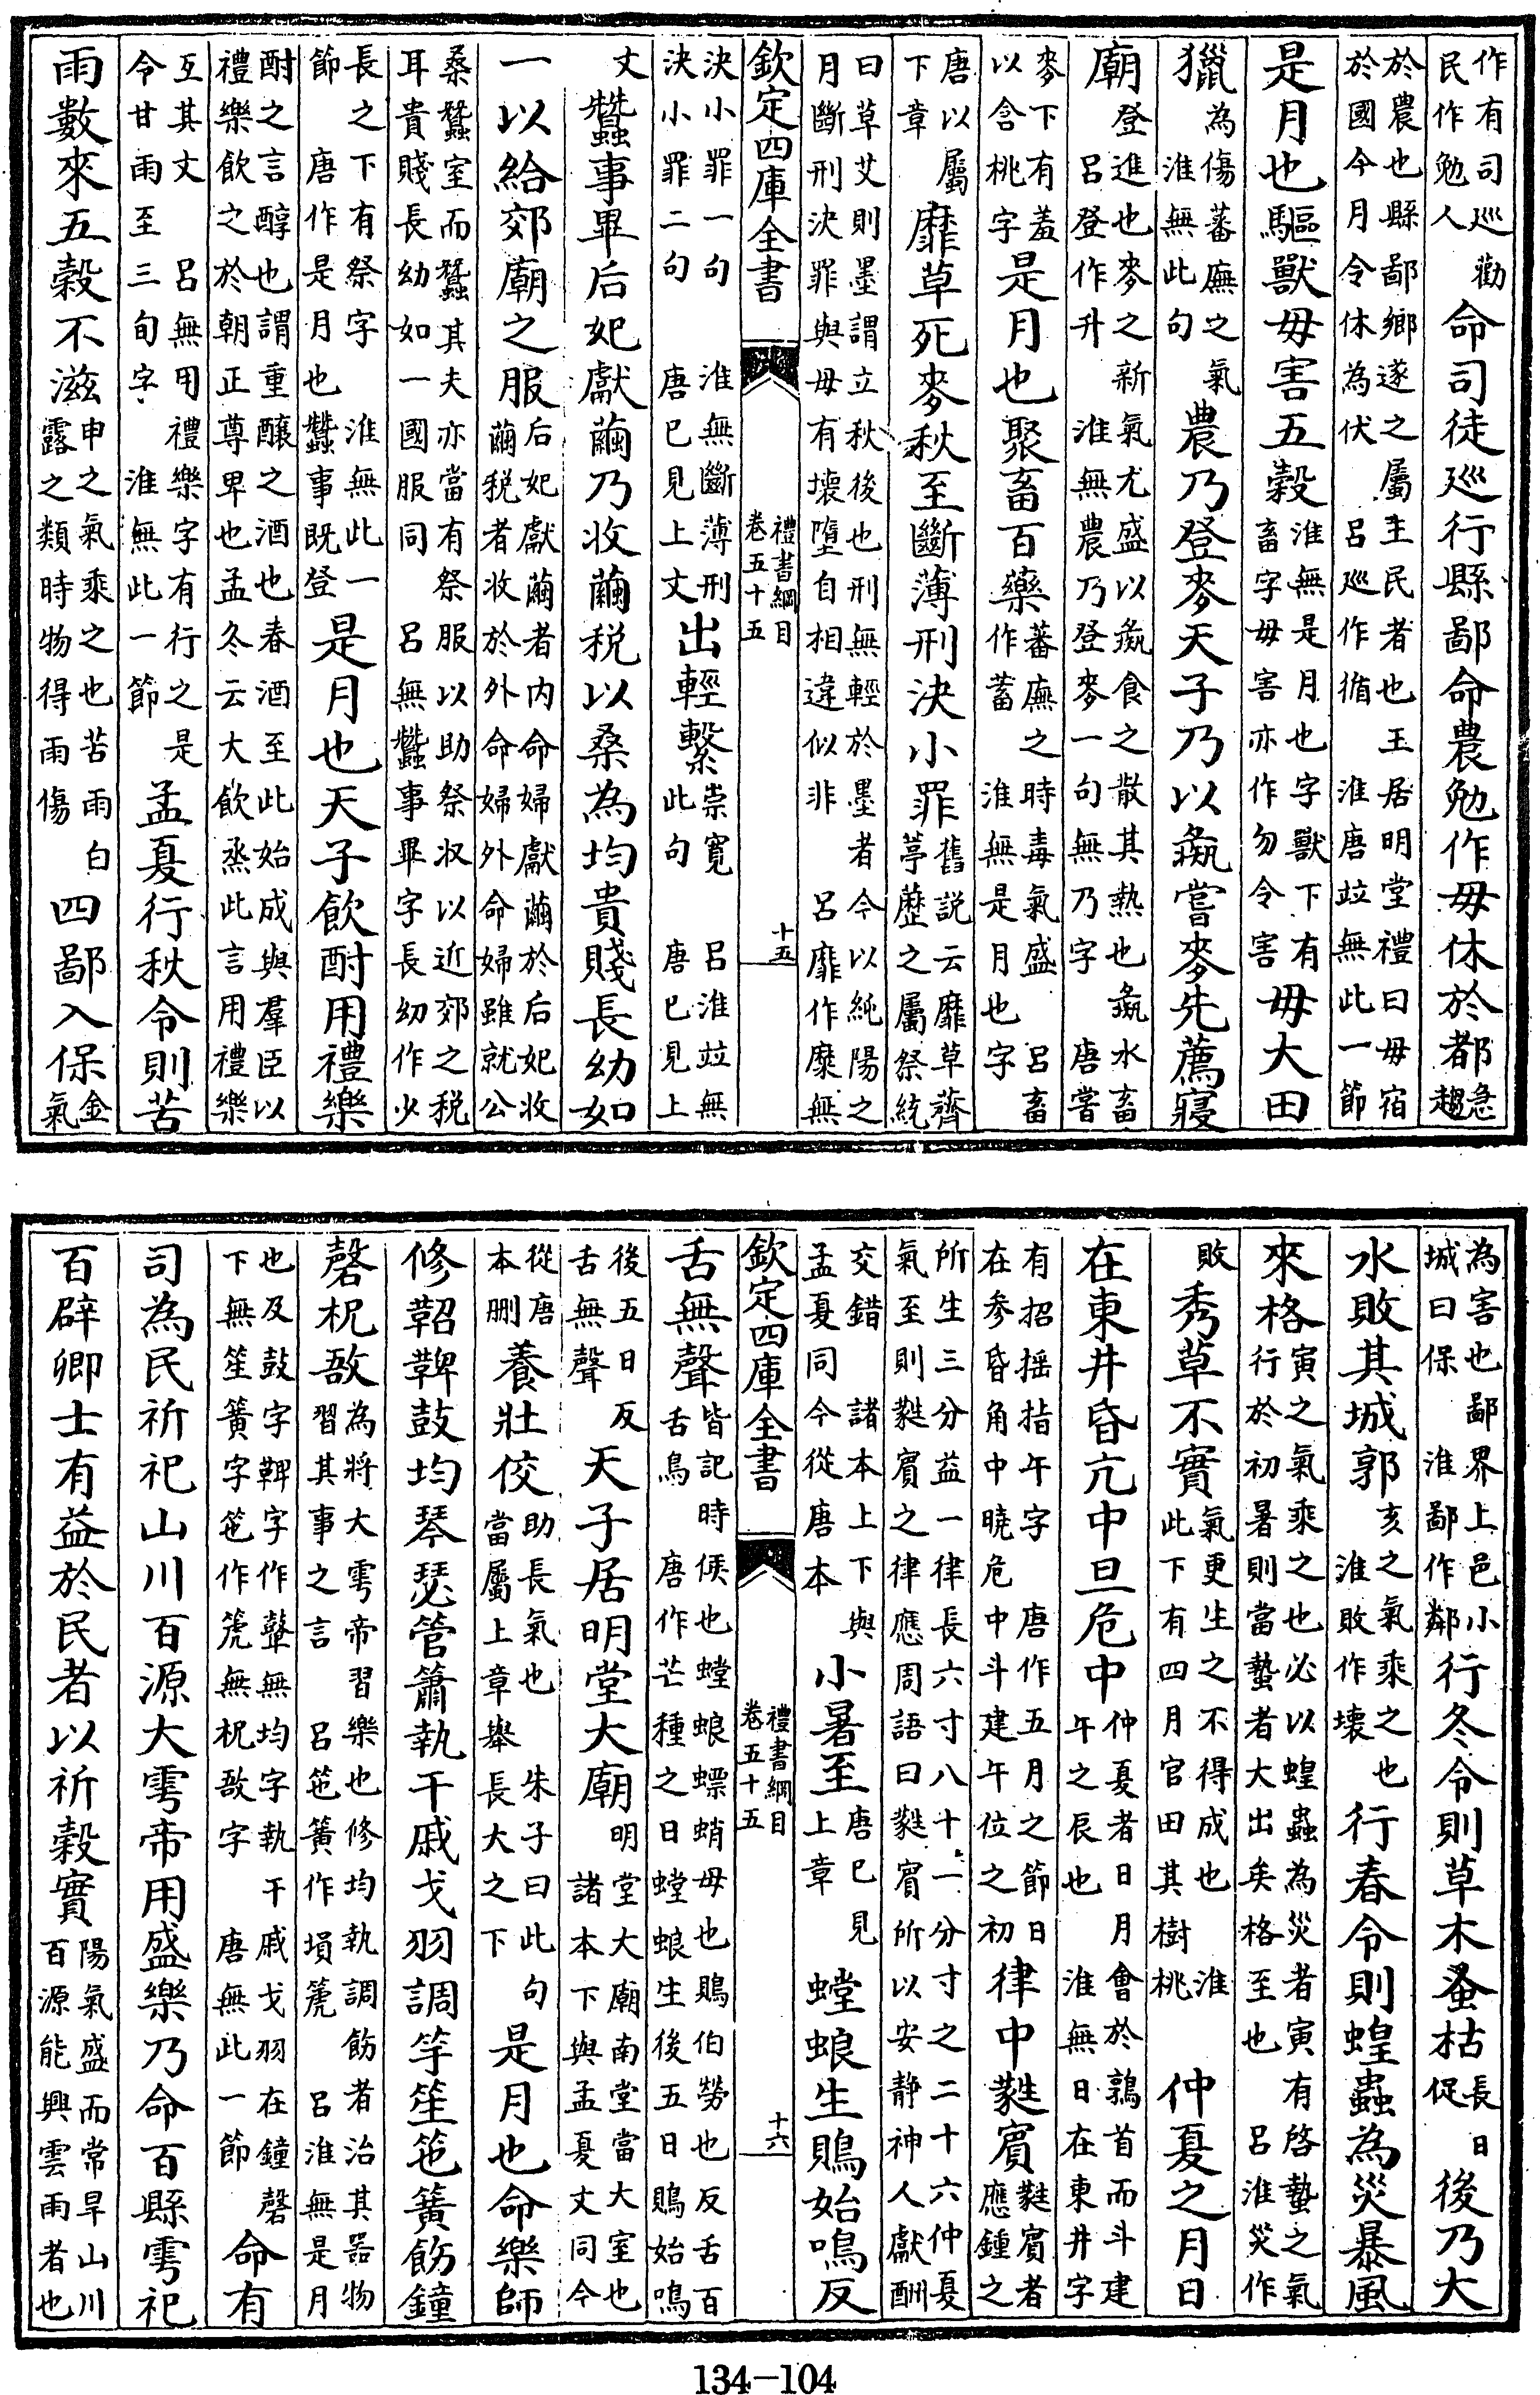 作有司巡勸
民作勉人
命司徒巡行縣鄙命農勉作毋休於都
急
趨
於農也縣鄙鄉遂之屬主民者也王居明堂禮曰毋宿
於國今月令休為伏 呂巡作循 淮唐竝無此一節
是月也驅獸毋害五穀
淮無是月也字獸下有
畜字毋害亦作勿令害
毋大田
獵
為傷蕃廡之氣
淮無此句
農乃登麥天子乃以彘嘗麥先薦寢
廟
登進也麥之新氣尤盛以彘食之散其熱也彘水畜
呂登作升 淮無農乃登麥一句無乃字 唐嘗
麥下有羞
以含桃字
是月也聚畜百藥
蕃廡之時毒氣盛 呂畜
作蓄 淮無是月也字
唐以屬
下章
靡草死麥秋至斷薄刑決小罪
舊説云靡草薺
葶藶之屬祭統
曰草艾則墨謂立秋後也刑無輕於墨者今以純陽之
月斷刑決罪與毋有壞墮自相違似非 呂靡作糜無
欽定四庫全書 禮書綱目 卷五十五 十五
決小罪一句 淮無斷薄刑
決小罪二句 唐已見上文
出輕繫
崇寬 呂淮竝無
此句 唐已見上
文
蠶事畢后妃獻繭乃收繭税以桑為均貴賤長幼如
一以給郊廟之服
后妃獻繭者内命婦獻繭於后妃收
繭税者收於外命婦外命婦雖就公
桑蠶室而蠶其夫亦當有祭服以助祭收以近郊之税
耳貴賤長幼如一國服同 呂無蠶事畢字長幼作少
長之下有祭字 淮無此一
節 唐作是月也蠶事既登
是月也天子飲酎用禮樂
酎之言醇也謂重釀之酒也春酒至此始成與羣臣以
禮樂飲之於朝正尊卑也孟冬云大飲烝此言用禮樂
互其文 呂無用禮樂字有行之是
令甘雨至三旬字 淮無此一節
孟夏行秋令則苦
雨數來五穀不滋
申之氣乘之也苦雨白
露之類時物得雨傷
四鄙入保
金
氣
為害也鄙界上邑小
城曰保 淮鄙作鄰
行冬令則草木蚤枯
長日
促
後乃大
水敗其城郭
亥之氣乘之也
淮敗作壞
行春令則蝗蟲為災暴風
來格
寅之氣乘之也必以蝗蟲為災者寅有啓蟄之氣
行於初暑則當蟄者大出矣格至也 呂淮災作
敗
秀草不實
氣更生之不得成也 淮
此下有四月官田其樹桃
仲夏之月日
在東井昏亢中旦危中
仲夏者日月會於鶉首而斗建
午之辰也 淮無日在東井字
有招搖指午字 唐作五月之節日
在參昏角中曉危中斗建午位之初
律中蕤賓
蕤賓者
應鍾之
所生三分益一律長六寸八十一分寸之二十六仲夏
氣至則蕤賓之律應周語曰蕤賓所以安静神人獻酬
交錯 諸本上下與
孟夏同今從唐本
小暑至
唐已見
上章
螳蜋生鵙始鳴反
欽定四庫全書 禮書綱目 卷五十五 十六
舌無聲
皆記時候也螳蜋螵蛸母也鵙伯勞也反舌百
舌鳥 唐作芒種之日螳蜋生後五日鵙始鳴
後五日反
舌無聲
天子居明堂大廟
明堂大廟南堂當大室也
諸本下與孟夏文同今
從唐
本删
養壯佼
助長氣也 朱子曰此句
當屬上章舉長大之下
是月也命樂師
修鞀鞞鼓均琴瑟管簫執干戚戈羽調竽笙竾簧飭鐘
磬柷敔
為將大雩帝習樂也修均執調飭者治其器物
習其事之言 呂竾簧作塤箎 呂淮無是月
也及鼓字鞞字作鼙無均字執干戚戈羽在鐘磬
下無笙簧字竾作箎無柷敔字 唐無此一節
命有
司為民祈祀山川百源大雩帝用盛樂乃命百縣雩祀
百辟卿士有益於民者以祈穀實
陽氣盛而常旱山川
百源能興雲雨者也
134-104